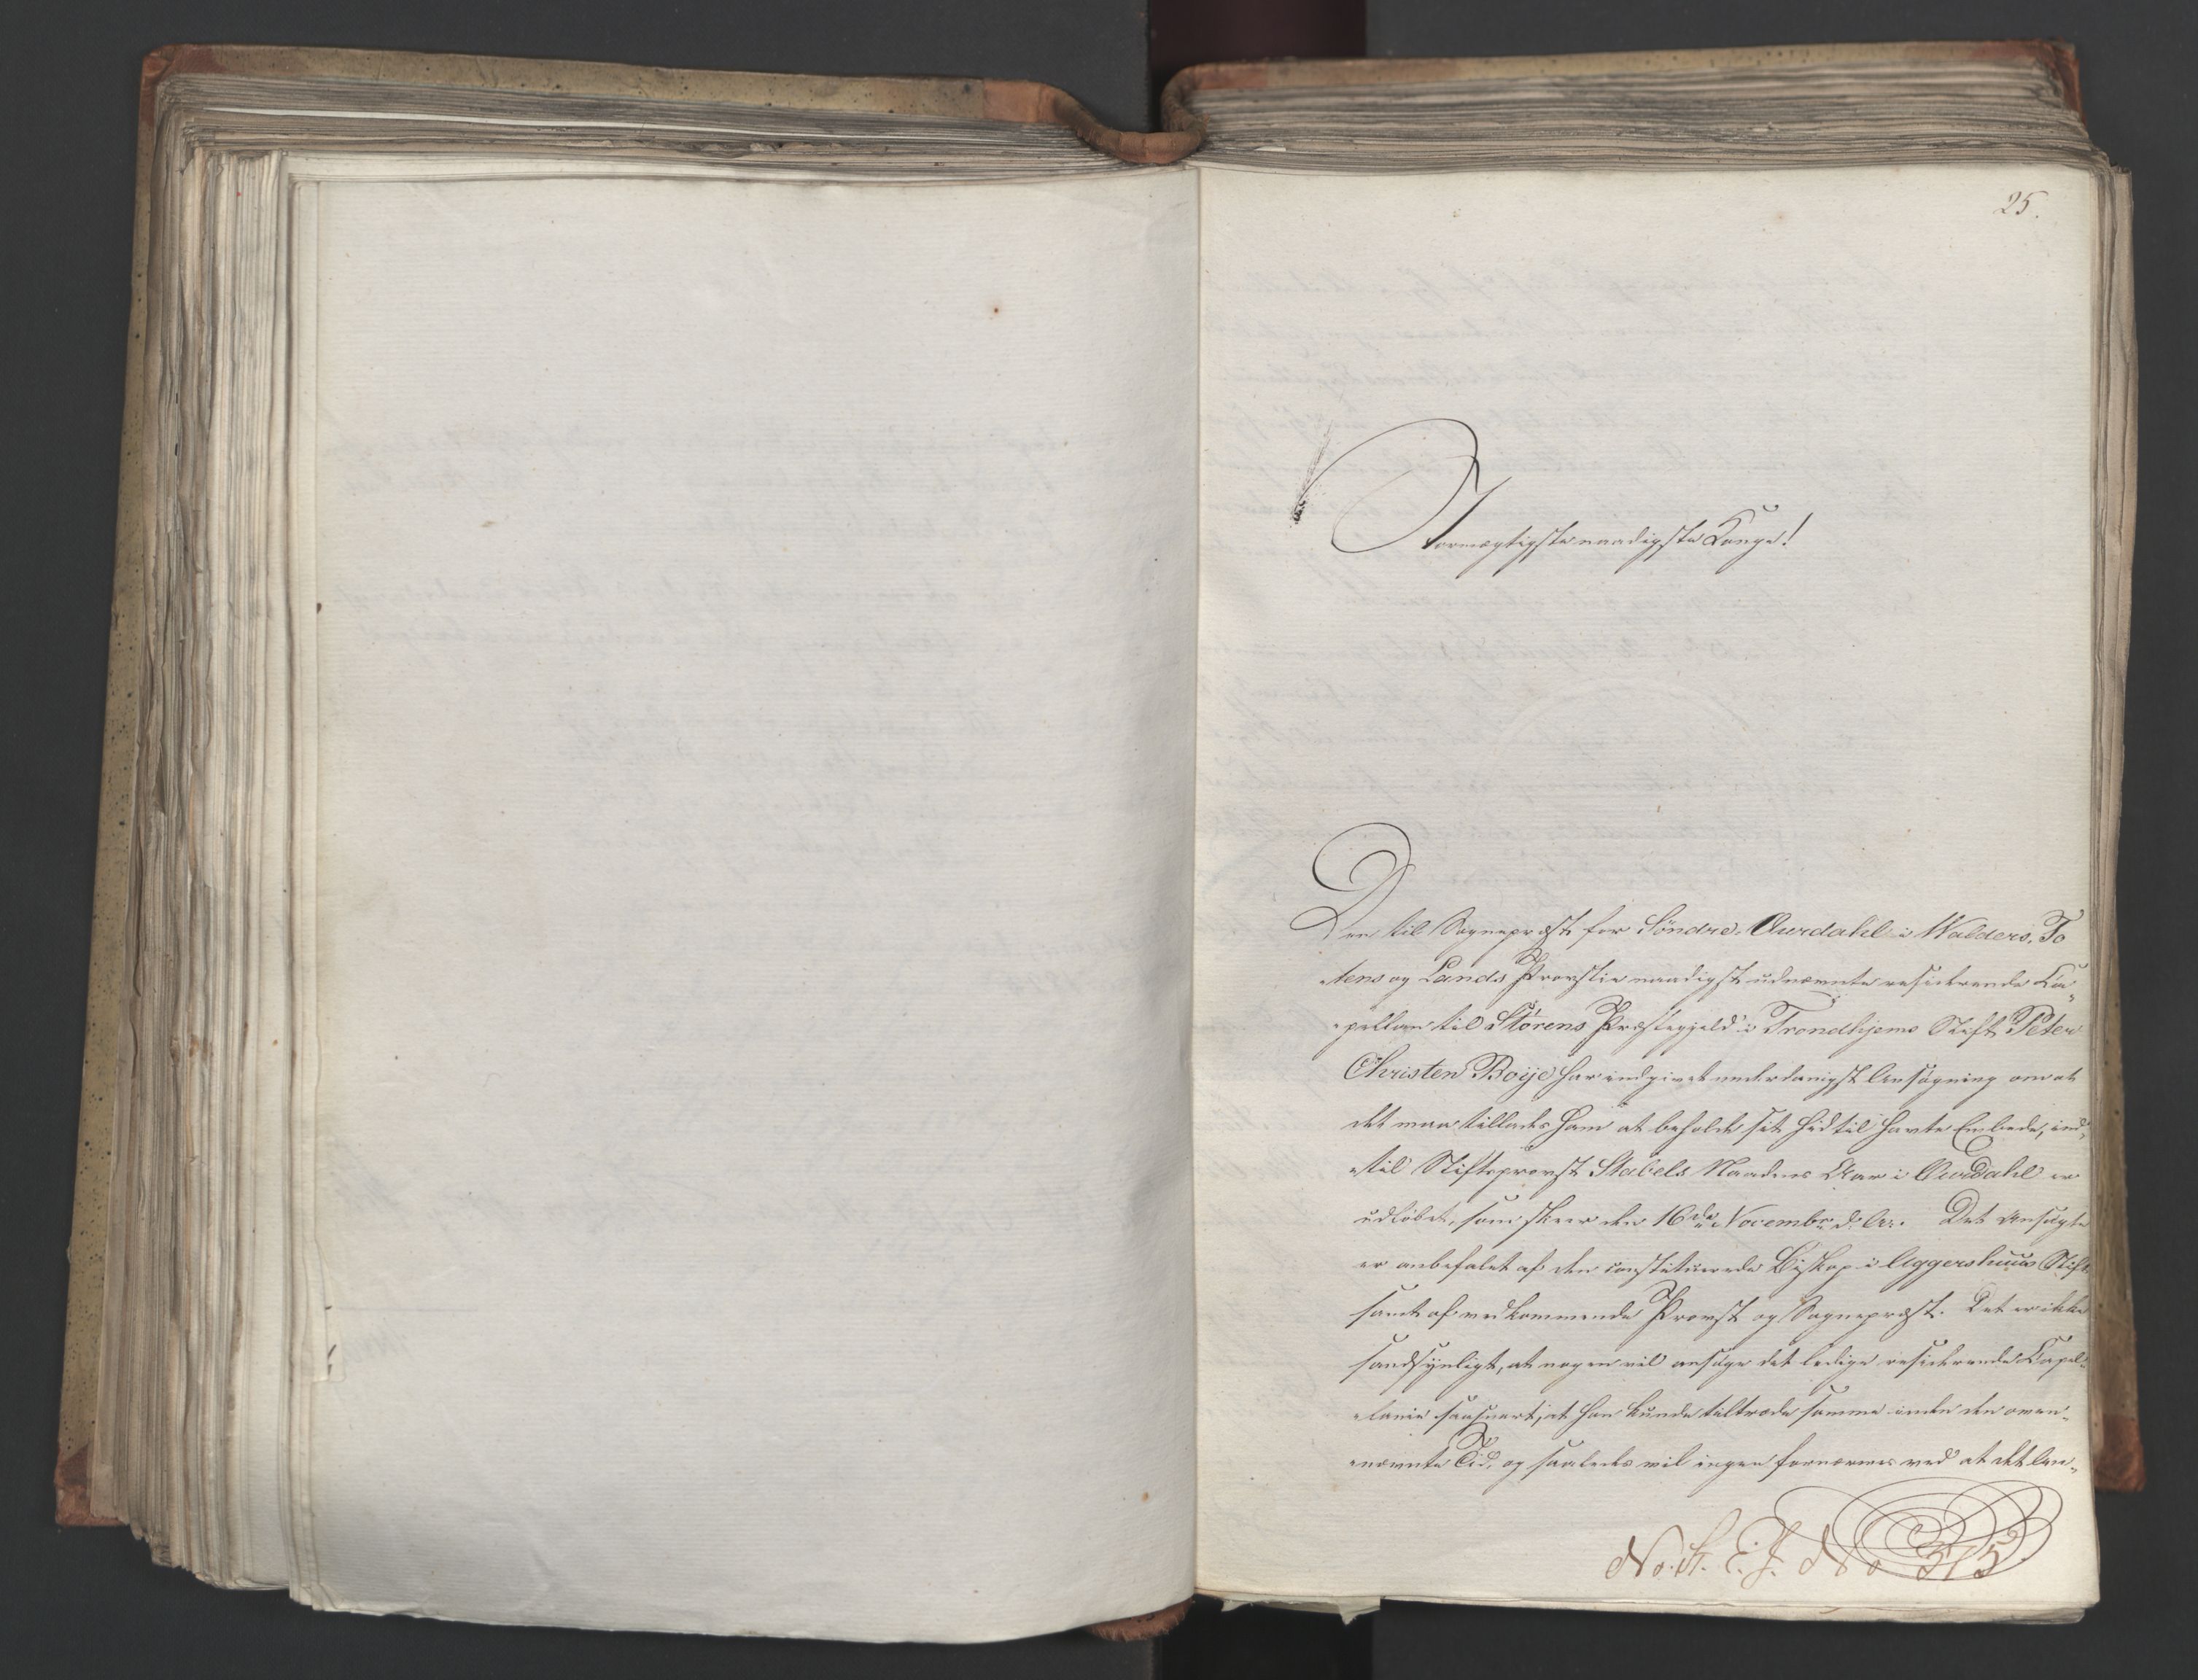 25.
Stormægtigste naadigste Konge!
Den til Sognepræst for Søndre Aurdahl i Walders, To
tens og Lands Provstie naadigst udnævnte residerende Ca„
„pellan til Størens Præstegjeld i Trondhjems Stift Peter
Christen Boije har indgivet underdanigst Ansøgning om at
det maa tillades ham at beholde sit hidtil havte Embede, ind„
„til Stiftsprovst Stabels Naadens Aar i Aurdahl er
udløbet, som skeer den 16de Novembr d. A. Det Ansøgte
er anbefalet af den constituerede Biskop i Aggershuus Stift
samt af vedkommende Provst og Sognepræst. Det er ikke
sandsynligt, at nogen vil ansøge det ledige residerende Capel„
„lanie saasnart, at han kunde tiltræde samme inden den oven„
„nævnte Tid, og saaledes vil ingen fornærmes ved at det An„
No. A. E. J. No 375